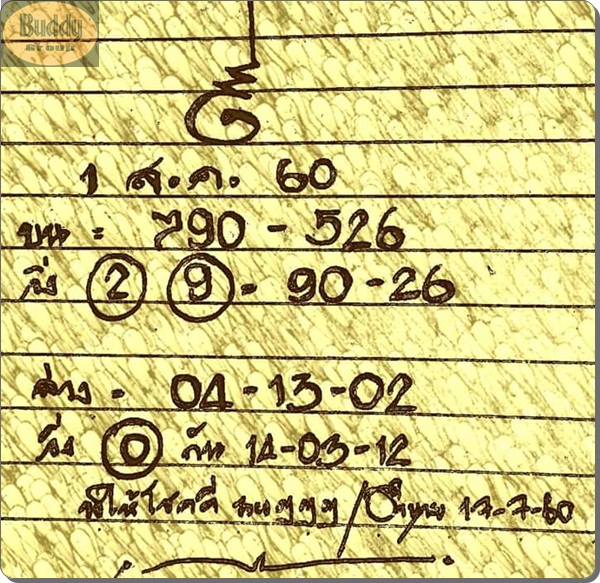 Buddy
GROUP
1 ส.ค. 60
บน = 790 - 526
วิ่ง 2 9 - 90 - 26
ล่าง - 04 - 13 - 02
วิ่ง 0 กัน 14 - 03 - 12
ให้โชคดี 17-7-60